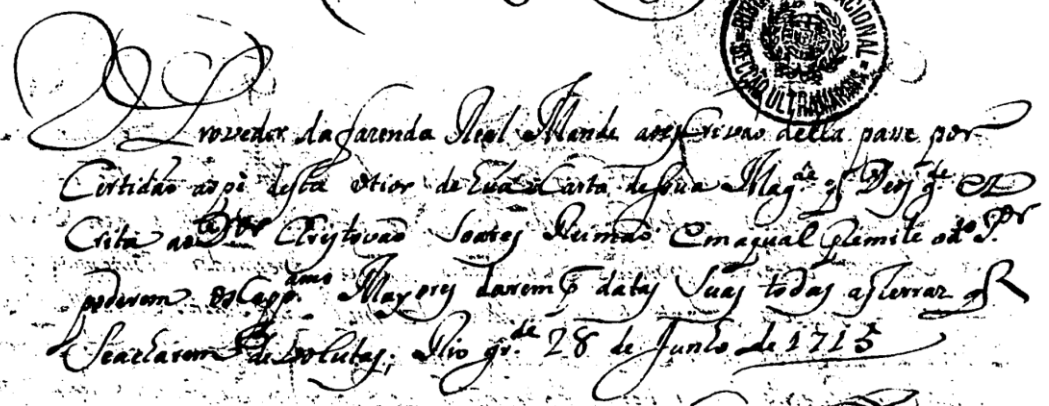 BIBLIOTECA NACIONAL
SECÇÃO ULTRAMARINA
O Provedor da fazenda Real Mande ao escrivão della passe por
Certidão ao pé desta o tior de hũa Carta de sua Magde q Deos gde es
Crita ao Dor Christovão Soares Reimão Em a qual
poderem os Cappam Mayores darem datas suas todas as terras q
Se acharem devolutas; Rio grde 28 de Junho de 1715